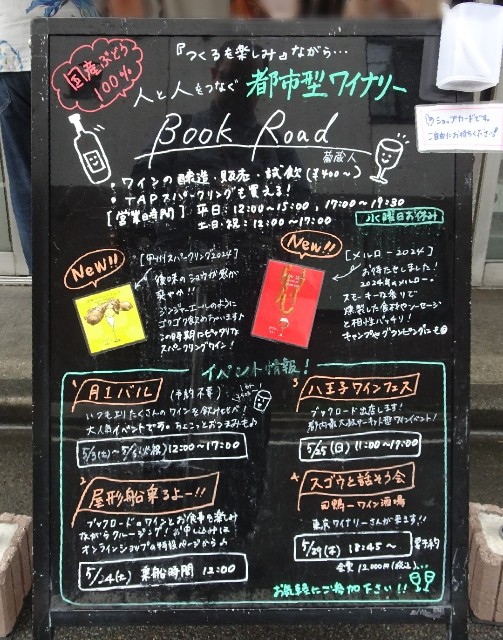 国産ぶどう
100%
『つくるを楽しみ』ながら…
人と人をつなぐ 都市型ワイナリー
Book Road
葡蔵人
・ワインの醸造・販売・試飲(¥400〜)
・TAPスパークリングも買える!
[営業時間] 平日:12:00〜15:00, 17:00〜19:30
土日祝:12:00〜17:00
水曜日お休み
ショップカードです。
ご自由にお持ちください
New!!
[甲州スパークリング2024]
後味のショウガ感が
爽やか!!
ジンジャーエールのように
ゴクゴク飲めちゃいます♪
この時期にピッタリな
スパークリングワイン!
New!!
[メルロー2024]
お待たせしました!
2024年のメルロー。
スモーキーな香りで
燻製した食材やソーセージ
と相性バッチリ!
キャンプやグランピングにも
イベント情報!
1 月1バル (予約不要)
いつもよりたくさんのワインを飲み比べ!
大人気イベントです。ちょこっとおつまみも♪
12:00〜17:00
2 屋形船乗るよー!!
ブックロードのワインとお食事を楽しみ
ながらクルージング!お申し込みは
オンラインショップの特設ページから♪
5/24(土) 乗船時間 12:00
3 八王子ワインフェス
ブックロード出店します!
都内最大級サーキット型ワインイベント!
5/25(日) 11:00〜17:00
4 スゴウと話そう会
田鴨ーワイン酒場
東京ワイナリーさんが来ます!!
5/29(木) 18:45〜 要予約
会費 12,000円(税込)
お気軽にご参加下さい!!